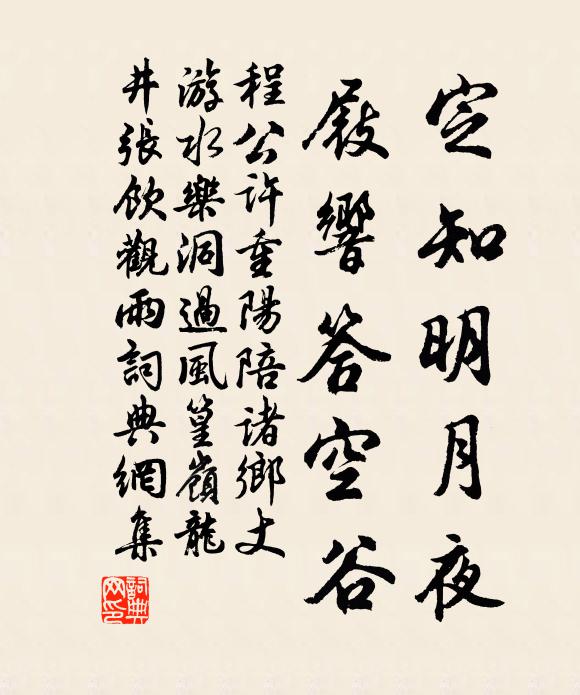 定知明月夜
屐響答空谷
程公許重陽陪諸鄉丈
游水樂洞過風篁嶺龍
井張飲觀雨詞典網集
詞典網印